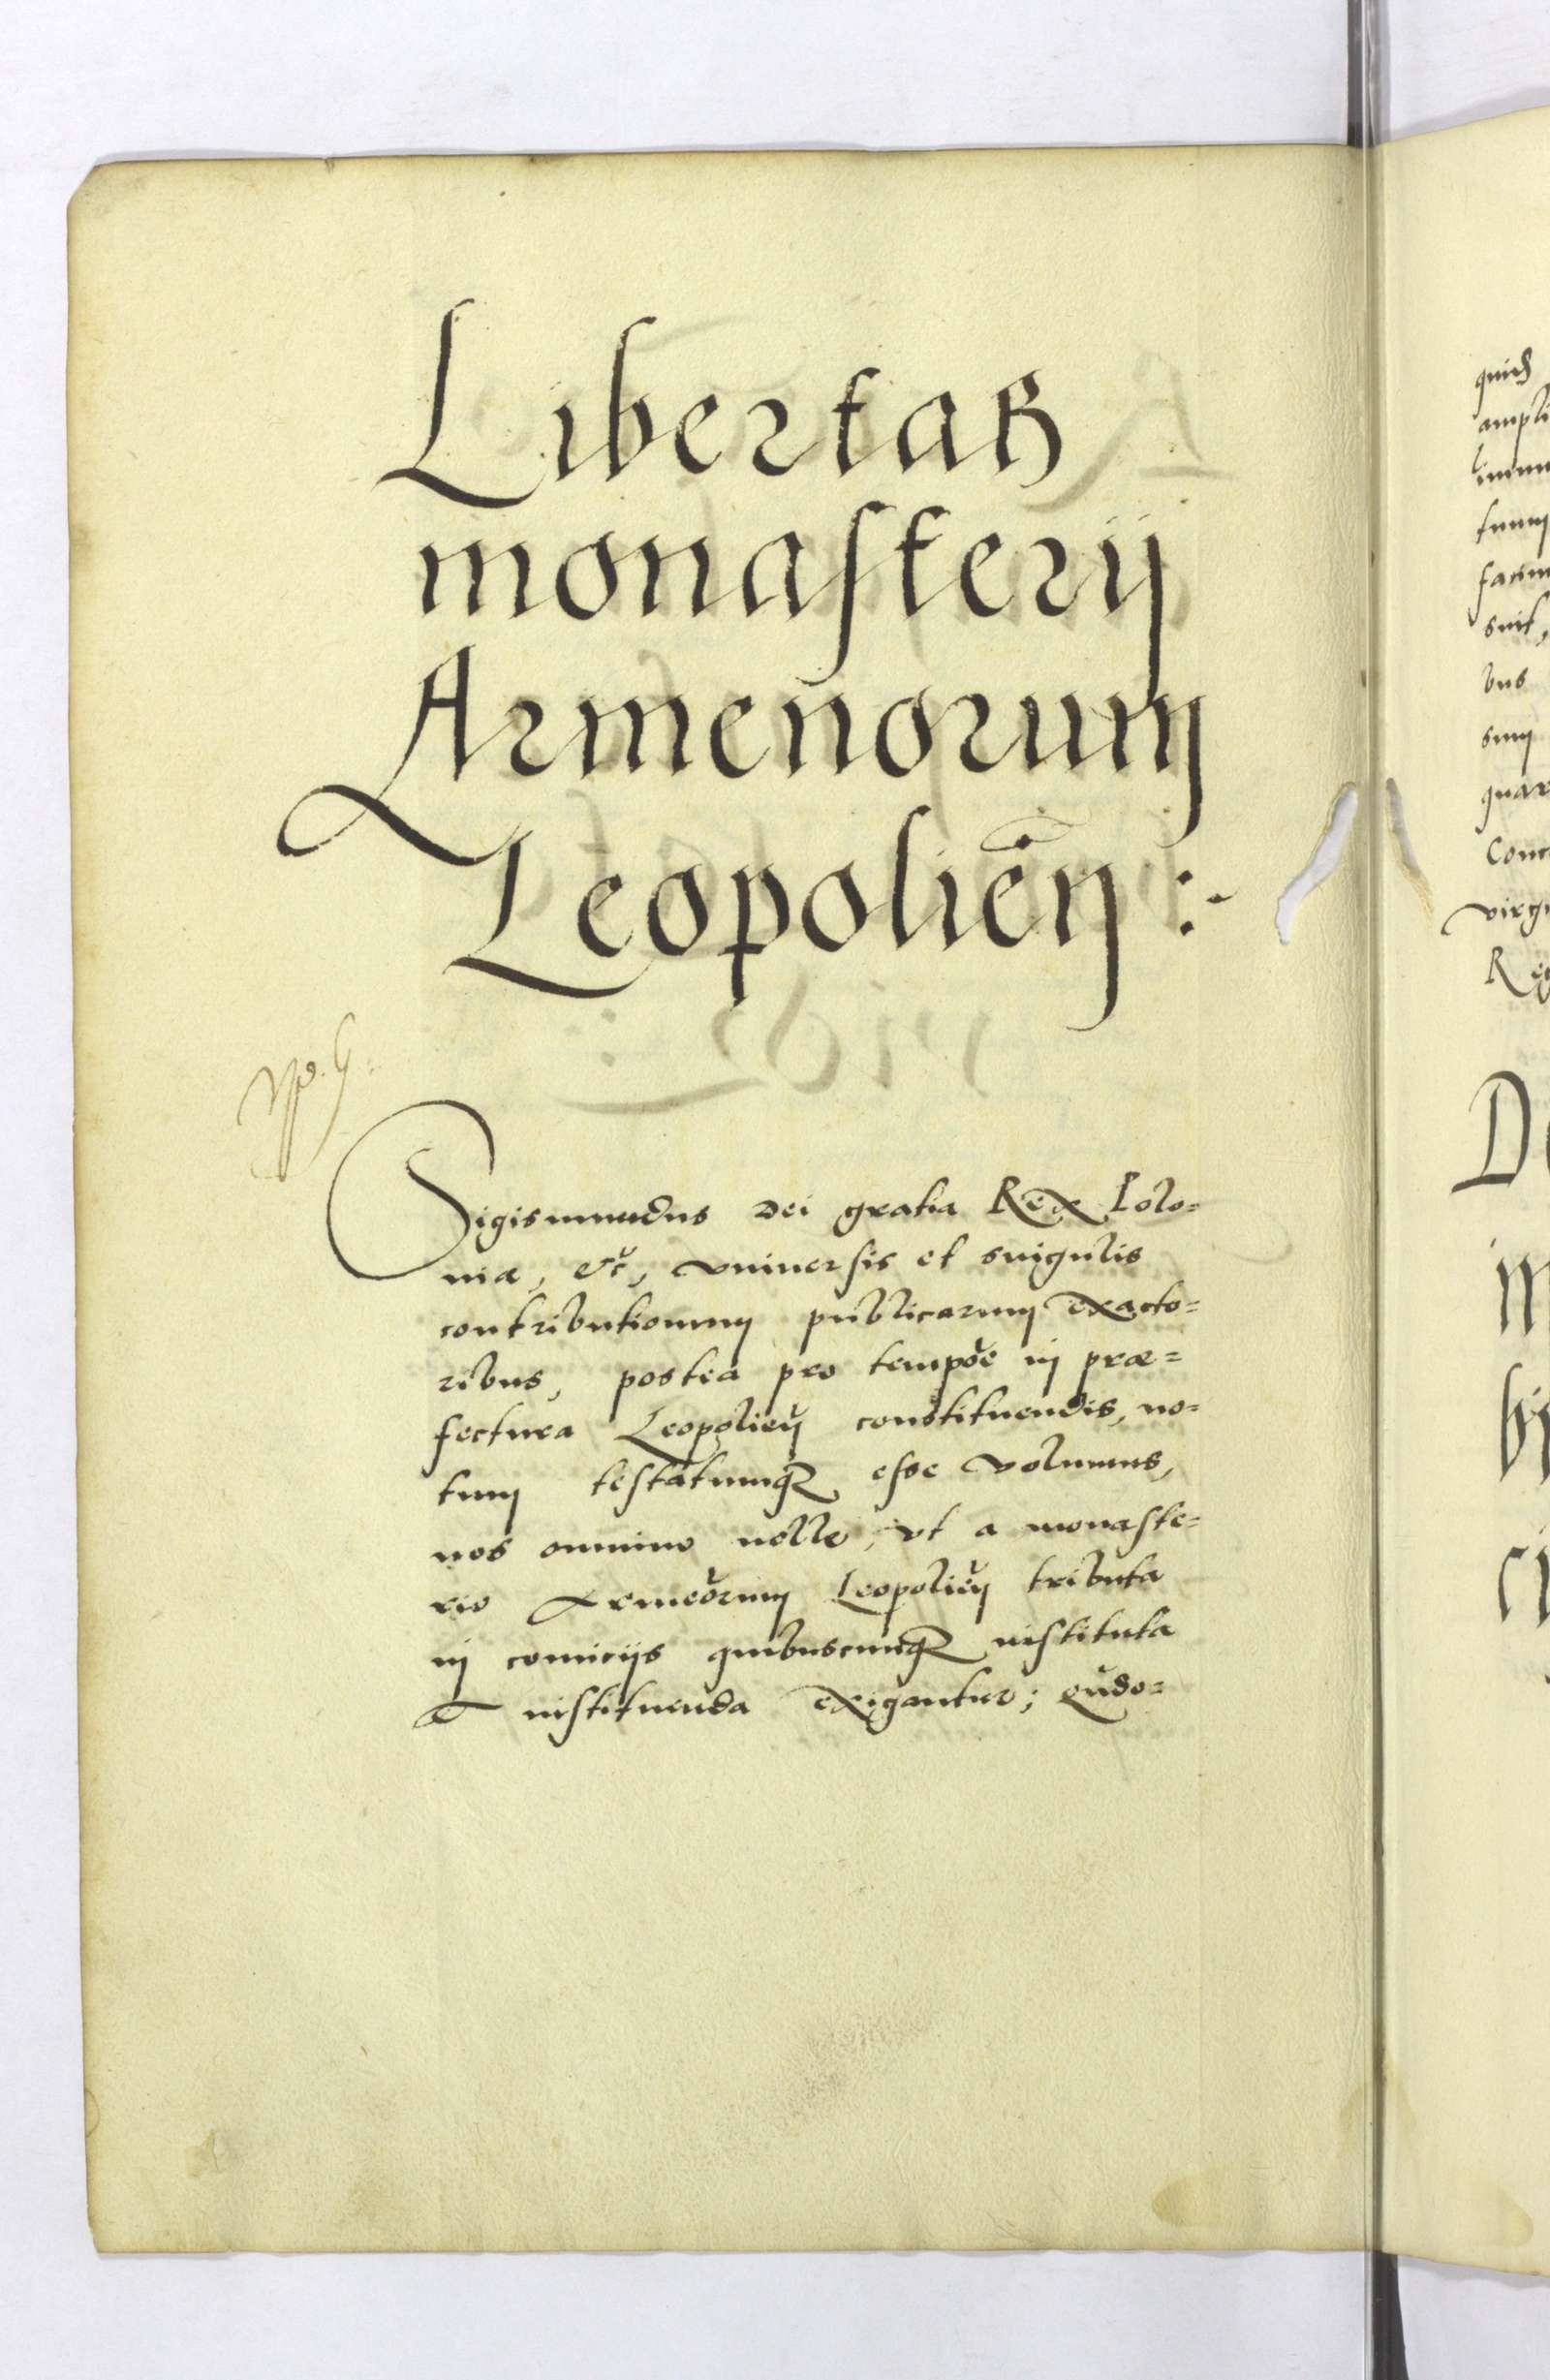 Libertas
monasterij
Armenorum
Leopolien̄ :
Sigismundus Dei gratia Rex Polo=
niæ, &c̆, vniuersis et singulis
contributionum publicarum exacto=
ribus, postea pro tempŏe in præ=
fectura Leopolien̆ constituendis, no=
tum testatumq esse volumus,
nos omnino nolle, vt a monaste=
rio Armeŏrum Leopolien̆ tributa
in comicijs quibuscunq instituta
et instituenda exigantur; qŭdo=
quid
ampli
bus
quar
Conc
virgi
Reg